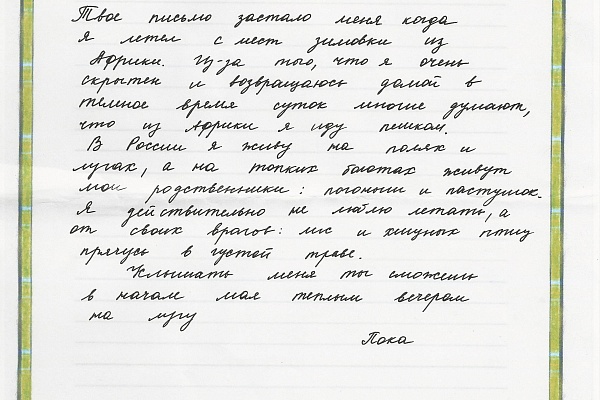 Твоё письмо застало меня когда
я летел с мест зимовки из
Африки. Из-за того, что я очень
скрытен и возвращаюсь домой в
темное время суток многие думают,
что из Африки я иду пешком.
В России я живу на полях и
лугах, а на топких болотах живут
мои родственники: погоныш и пастушок.
Я действительно не люблю летать, а
от своих врагов: лис и хищных птиц
прячусь в густой траве.
Услышать меня ты сможешь
в начале мая теплым вечером
на лугу
Пока